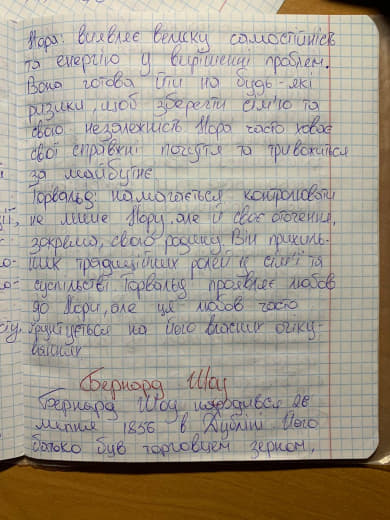 Нора: виявляє велику самостійність
та енергію у вирішенні проблем.
Вона готова йти на будь-які
ризики, щоб зберегти сім'ю та
свою незалежність Нора часто ховає
свої справжні почуття та тривожиться
за майбутнє
Торвальд: намагається контролювати
не лише Нору, але й своє оточення,
зокрема, свою родину Він прихиль-
ник традиційних ролей в сім'ї та
суспільстві Торвальд проявляє любов
до Нори, але ця любов часто
ґрунтується на його власних очіку-
ваннях
Бернард Шоу
Бернард Шоу народився 26
липня 1856 в Дубліні Його
батько був торговцем зерном,